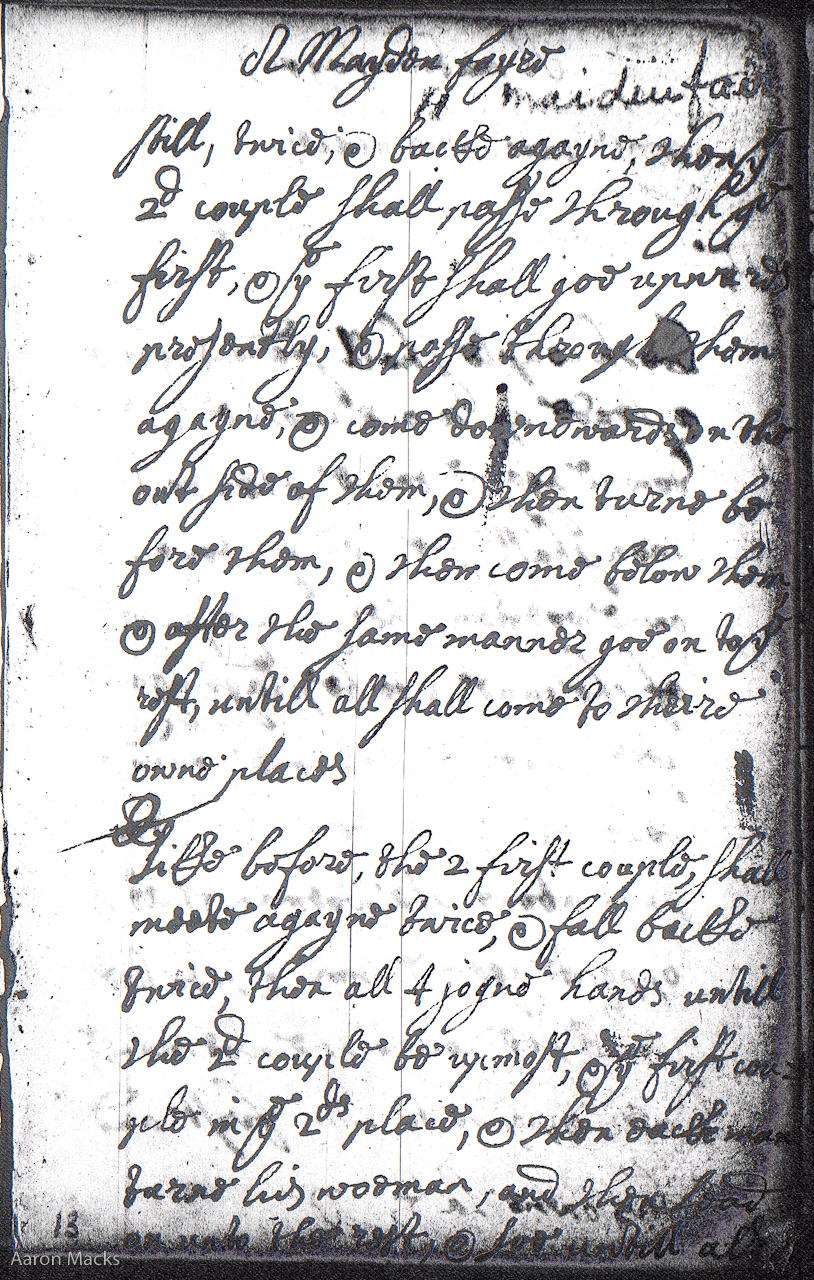 A Mayden fayre
maiden fair
still, twice; & backe agayne, then ye
2d couple shall passe through ye
first, & ye first shall goe upwards
presently, & passe through them
agayne; & come downewards on the
out side of them, & then turne be
fore them, & then come below them,
& after the same manner goe on to ye
rest, untill all shall come to theire
owne places
Like before, the 2 first couple, shall
meete agayne twice, & fall backe
twice, then all 4 joyne hands untill
the 2d couple be upmost, & ye first cou=
ple in ye 2ds place, & then each man
turne his woeman, and then lead
on unto the rest, & soe untill all
13
Aaron Macks